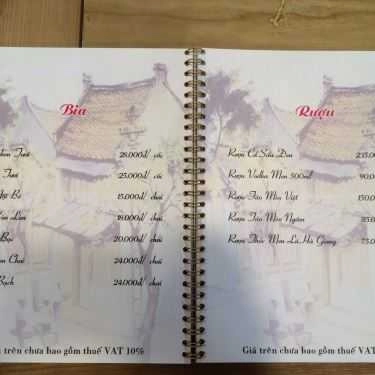 Bia
Tươi 28.000đ/ cốc
Tươi 25.000đ/ cốc
Bé 15.000đ/ chai
Lùn 18.000đ/ chai
Bạc 20.000đ/ chai
Chai 24.000đ/ chai
Bạch 24.000đ/ chai
á trên chưa bao gồm thuế VAT 10%
Rượu
Rượu Cá Sấu Đen 235.0
Rượu Vodka Men 500ml 90.00
Rượu Táo Mèo Việt 150.00
Rượu Táo Mèo Ngâm 35.00
Rượu Thóc Men Lá Hà Giang 75.00
Giá trên chưa bao gồm thuế VAT